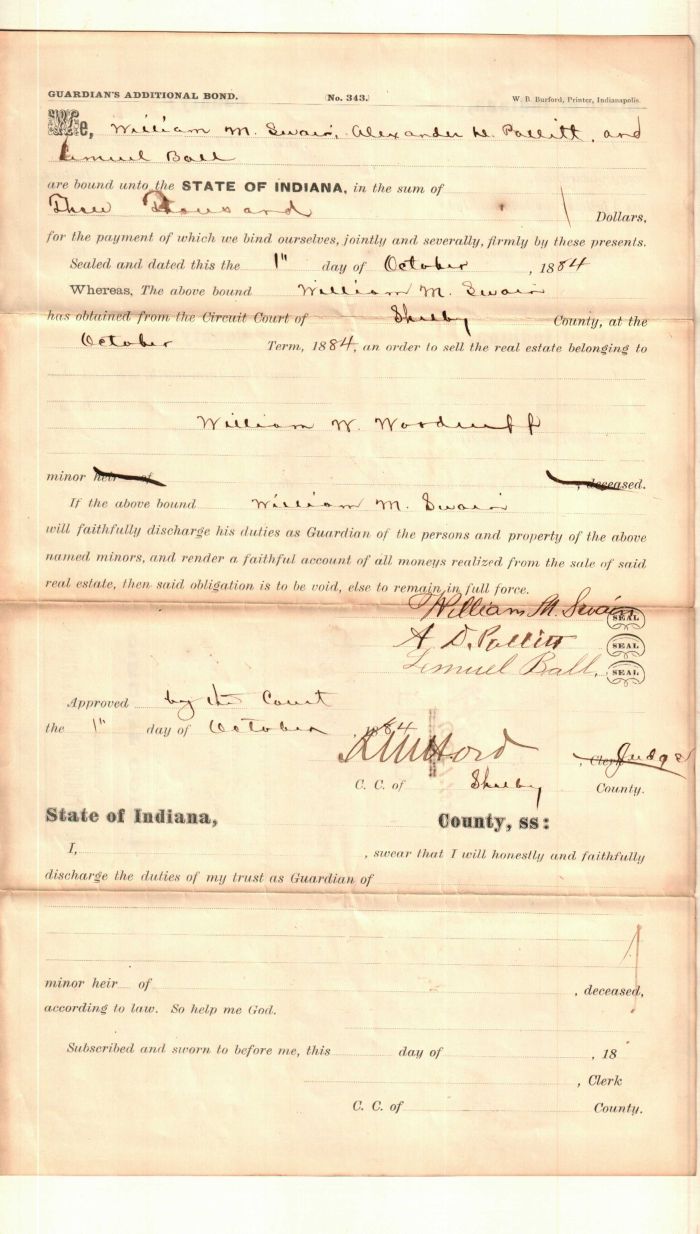 GUARDIAN'S ADDITIONAL BOND. (No. 343.) W. B. Burford, Printer, Indianapolis.
We, William M. Swain, Alexander D. Pollitt, and
Lemuel Ball
are bound unto the STATE OF INDIANA, in the sum of
Three Thousand Dollars,
for the payment of which we bind ourselves, jointly and severally, firmly by these presents.
Sealed and dated this the 1" day of October, 1884
Whereas, The above bound William M. Swain
has obtained from the Circuit Court of Shelby County, at the
October Term, 1884, an order to sell the real estate belonging to
William W. Woodruff
minor heir of , deceased.
If the above bound William M. Swain
will faithfully discharge his duties as Guardian of the persons and property of the above
named minors, and render a faithful account of all moneys realized from the sale of said
real estate, then said obligation is to be void, else to remain in full force.
William M. Swain SEAL
A D. Pollitt SEAL
Lemuel Ball. SEAL
Approved by the Court
the 1" day of October, 1884
, Clerk Judge
C. C. of Shelby County.
State of Indiana, County, ss:
I, , swear that I will honestly and faithfully
discharge the duties of my trust as Guardian of
minor heir of , deceased,
according to law. So help me God.
Subscribed and sworn to before me, this day of , 18
, Clerk
C. C. of County.